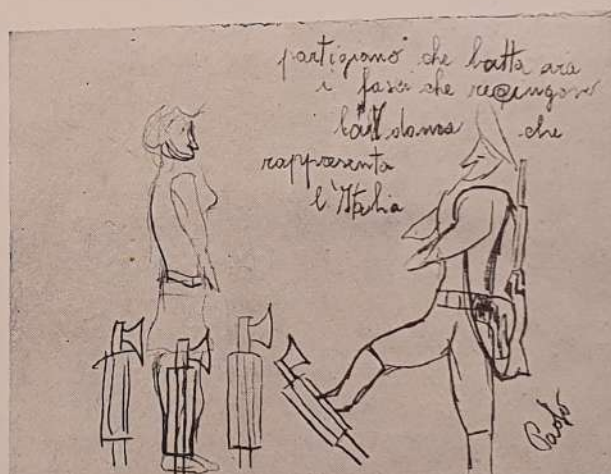 partigiano che batta ara
i fasci che recingono
la donna che
rappresenta
l'Italia
Paolo